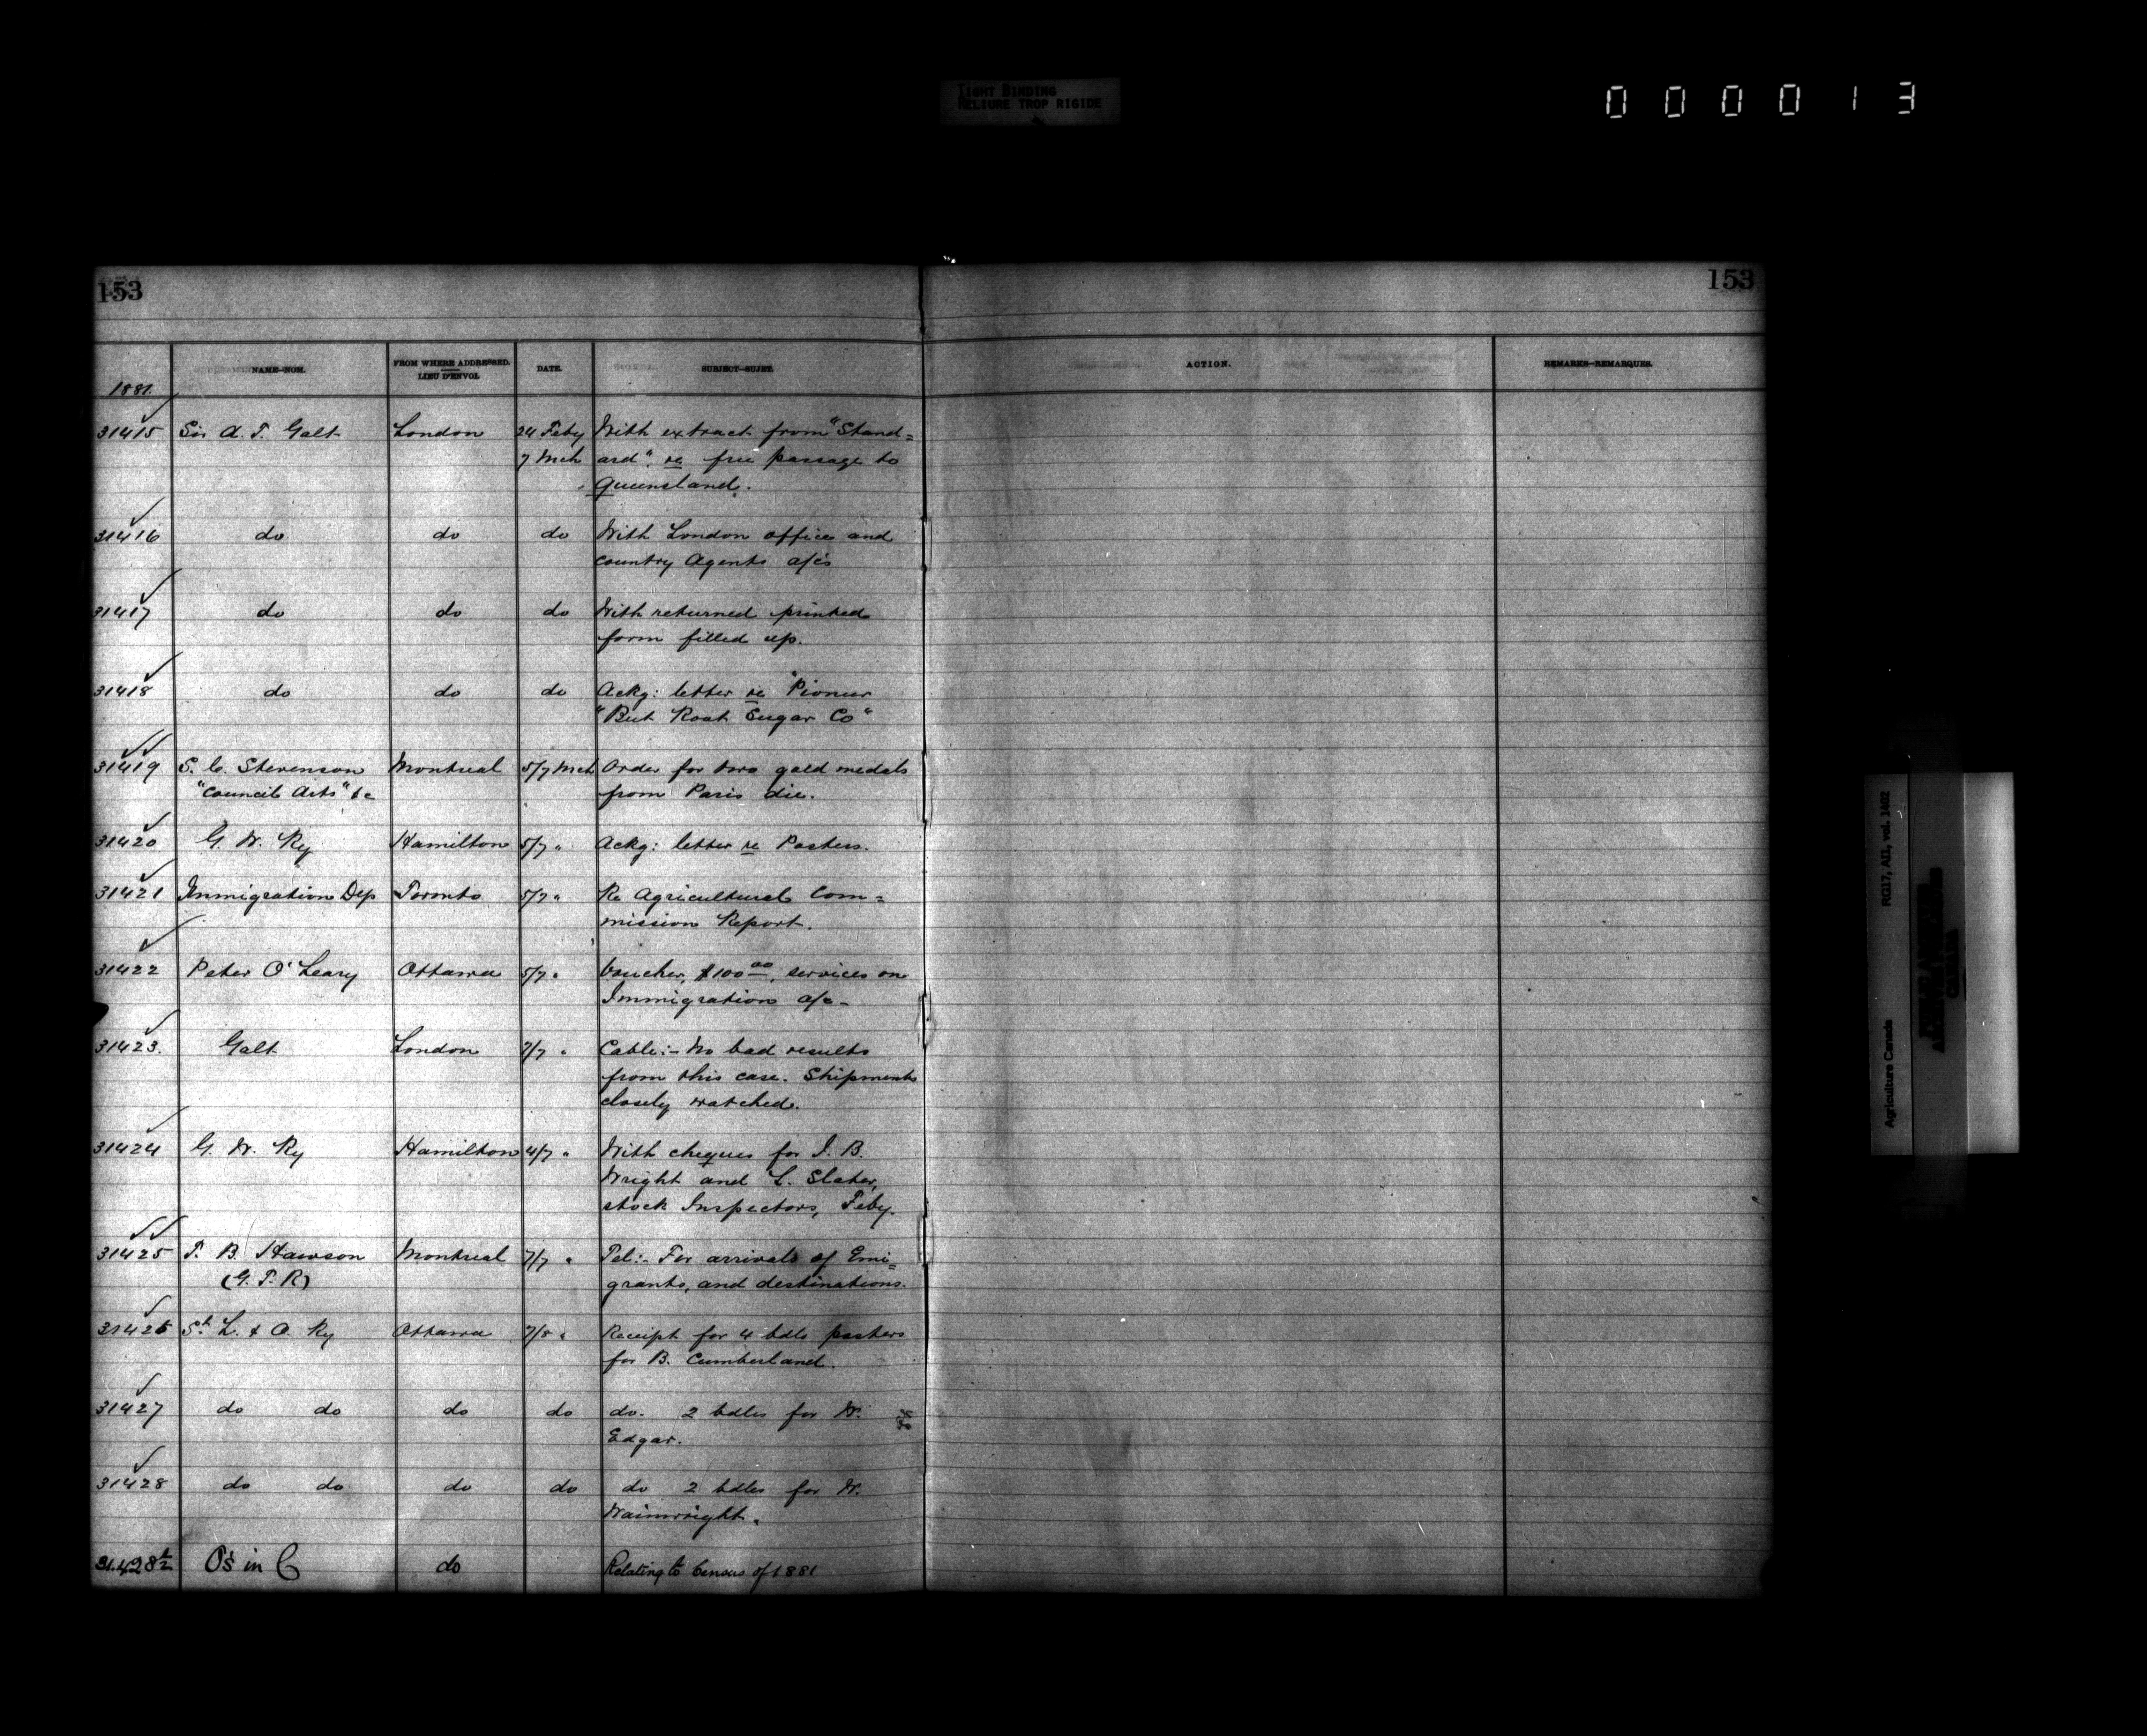 TIGHT BINDING
RELIURE TROP RIGIDE
000013
153
153
NAME—NOM.
FROM WHERE ADDRESSED.
LIEU D'ENVOI.
DATE.
SUBJECT—SUJET.
ACTION.
REMARKS—REMARQUES.
1881.
31415 Sir A. T. Galt London 24 Feby With extract from "Stand=
7 Mch ard" re free passage to
Queensland.
31416 do do do With London office and
country Agents a/cs
31417 do do do With returned printed
form filled up.
31418 do do do Ackg: letter re "Pioneer
"Beet Root Sugar Co"
31419 S. C. Stevenson Montreal 5/7 Mch Order for two gold medals
"Council Arts" &c from Paris die.
31420 G. W. Ry Hamilton 5/7 " Ackg: letter re Posters.
31421 Immigration Dep Toronto 5/7 " Re Agricultural Com=
mission Report.
31422 Peter O'Leary Ottawa 5/7 " Voucher, $100 00, services on
Immigration a/c-
31423. Galt London 7/7 " Cable:- No bad results
from this case. Shipments
closely watched.
31424 G. W. Ry Hamilton 4/7 " With cheques for J. B.
Wright and L. Slater,
stock Inspectors, Feby.
31425 T. B. Hawson Montreal 7/7 " Tel:- For arrivals of Emi=
(G. T. R) grants, and destinations.
31426 St. L. & O. Ry Ottawa 7/8 " Receipt for 4 bdls posters
for B. Cumberland.
31427 do do do do do. 2 bdls for W.
Edgar.
31428 do do do do do 2 bdles for W.
Wainwright.
31.428½ O's in C do Relating to Census of 1881
Agriculture Canada RG17, AII, vol. 1402